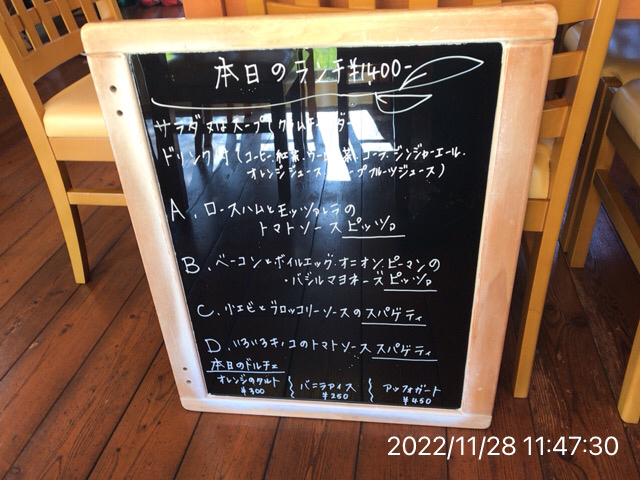 本日のランチ¥1400-
サラダ又はスープ(クラムチャウダー
ドリンク付(コーヒー.紅茶.ウーロン茶.コーラ.ジンジャーエール.
オレンジジュース グレープフルーツジュース)
A.ロースハムとモッツァレラの
トマトソースピッツァ
B.ベーコンとボイルエッグ.オニオン.ピーマンの
・バジルマヨネーズピッツァ
C.小エビとブロッコリーソースのスパゲティ
D.いろいろキノコのトマトソーススパゲティ
本日のドルチェ
オレンジのタルト バニラアイス アッフォガート
¥300 ¥250 ¥450
2022/11/28 11:47:30